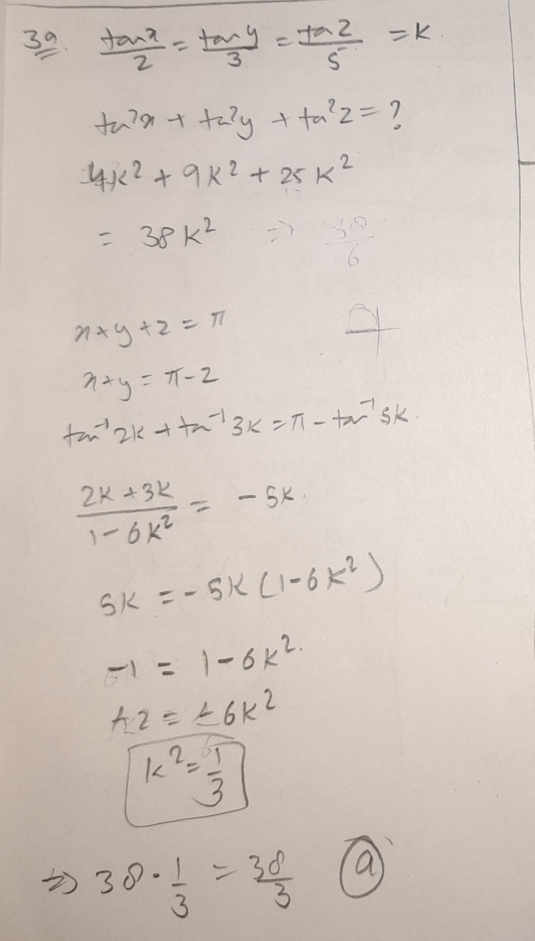 39. tanx/2 = tany/3 = taz/5 = K
ta²x + ta²y + ta²z = ?
4K² + 9K² + 25K²
= 38K² => 38/6
x+y+z = π
x+y = π-z
tan⁻¹2K + ta⁻¹3K = π - tan⁻¹5K.
2K+3K/1-6K² = -5K.
5K = -5K(1-6K²)
-1 = 1-6K².
+2 = +6K²
K² = 1/3
=> 38·1/3 = 38/3 (a)